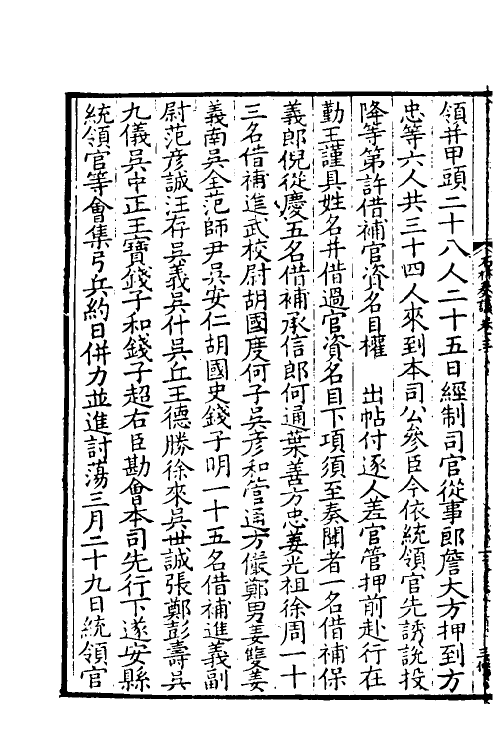 領并甲頭二十八人二十五日經制司官從事郎詹大方押到方
忠等六人共三十四人來到本司公參臣今依統領官先誘說投
降等第許借補官資名目權 出帖付逐人差官管押前赴行在
勤王謹具姓名并借過官資名目下項須至奏聞者一名借補保
義郎倪從慶五名借補承信郎何通葉善方忠姜光祖徐周一十
三名借補進武校尉胡國度何子吳彥和管通方儼鄭男姜雙姜
義南吳全范師尹吳安仁胡國史錢子明一十五名借補進義副
尉范彥誠汪存吳義吳什吳丘王德勝徐來吳世誠張鄭彭壽吳
九儀吳中正王寶錢子和錢子超右臣勘會本司先行下遂安縣
統領官等會集弓兵約日併力並進討蕩三月二十九日統領官